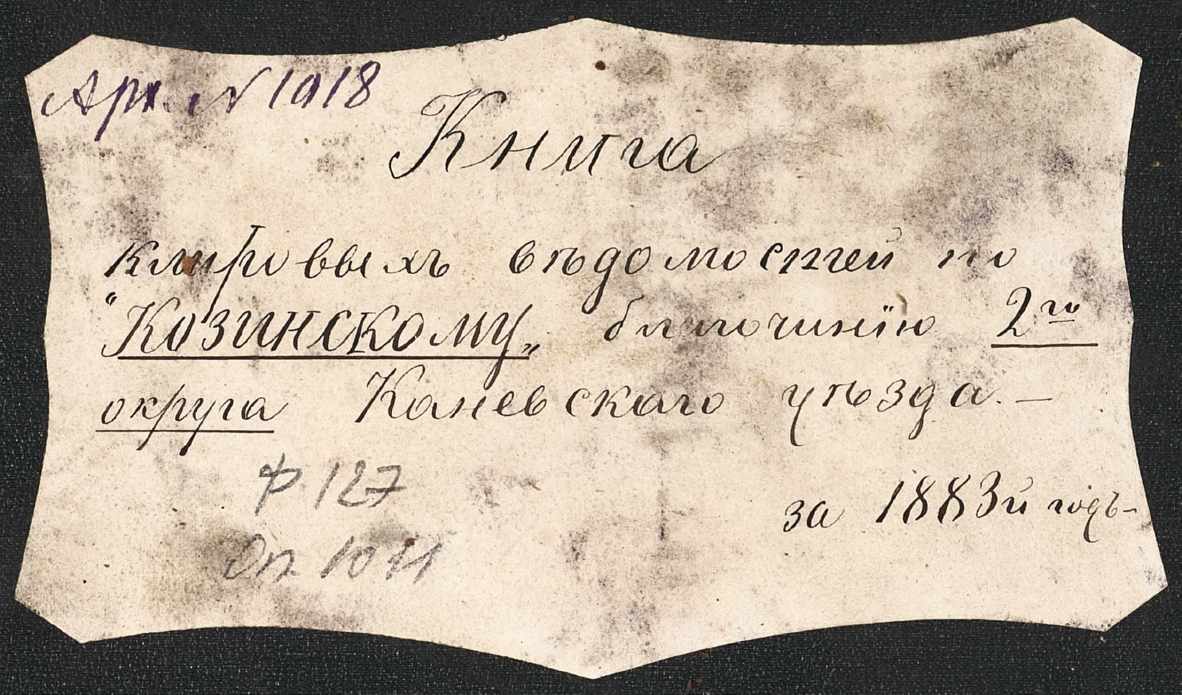 Арх. № 1918
Книга
клировыхъ вѣдомостей по
"Козинскому„ благочинію 2го
округа Каневскаго уѣзда.—
ф 127
оп. 1011
за 1883й годъ—